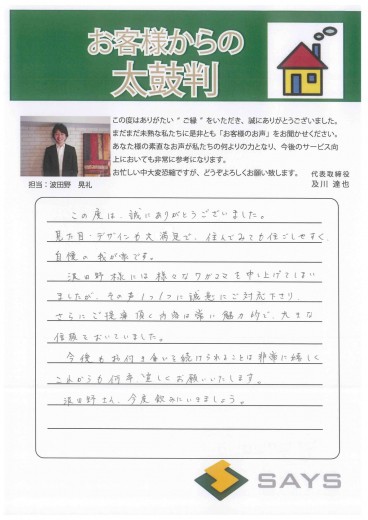 お客様からの
太鼓判
この度はありがたい“ご縁”をいただき、誠にありがとうございました。
まだまだ未熟な私たちに是非とも「お客様のお声」をお聞かせください。
あなた様の素直なお声が私たちの何よりの力となり、今後のサービス向
上においても非常に参考になります。
お忙しい中大変恐縮ですが、どうぞよろしくお願い致します。
代表取締役
及川 達也
担当：波田野 晃礼
この度は、誠にありがとうございました。
見た目・デザインも大満足で、住んでみても住ごしやすく、
自慢の我が家です。
波田野様には様々なワガママを申し上げてしまい
ましたが、その声1つ1つに誠意にご対応下さり、
さらにご提案頂く内容は常に魅力的で、大きな
信頼をおいていました。
今後もお付き合いを続けられることは非常に嬉しく
これからも何卒、宜しくお願いいたします。
波田野さん、今度飲みにいきましょう。
SAYS